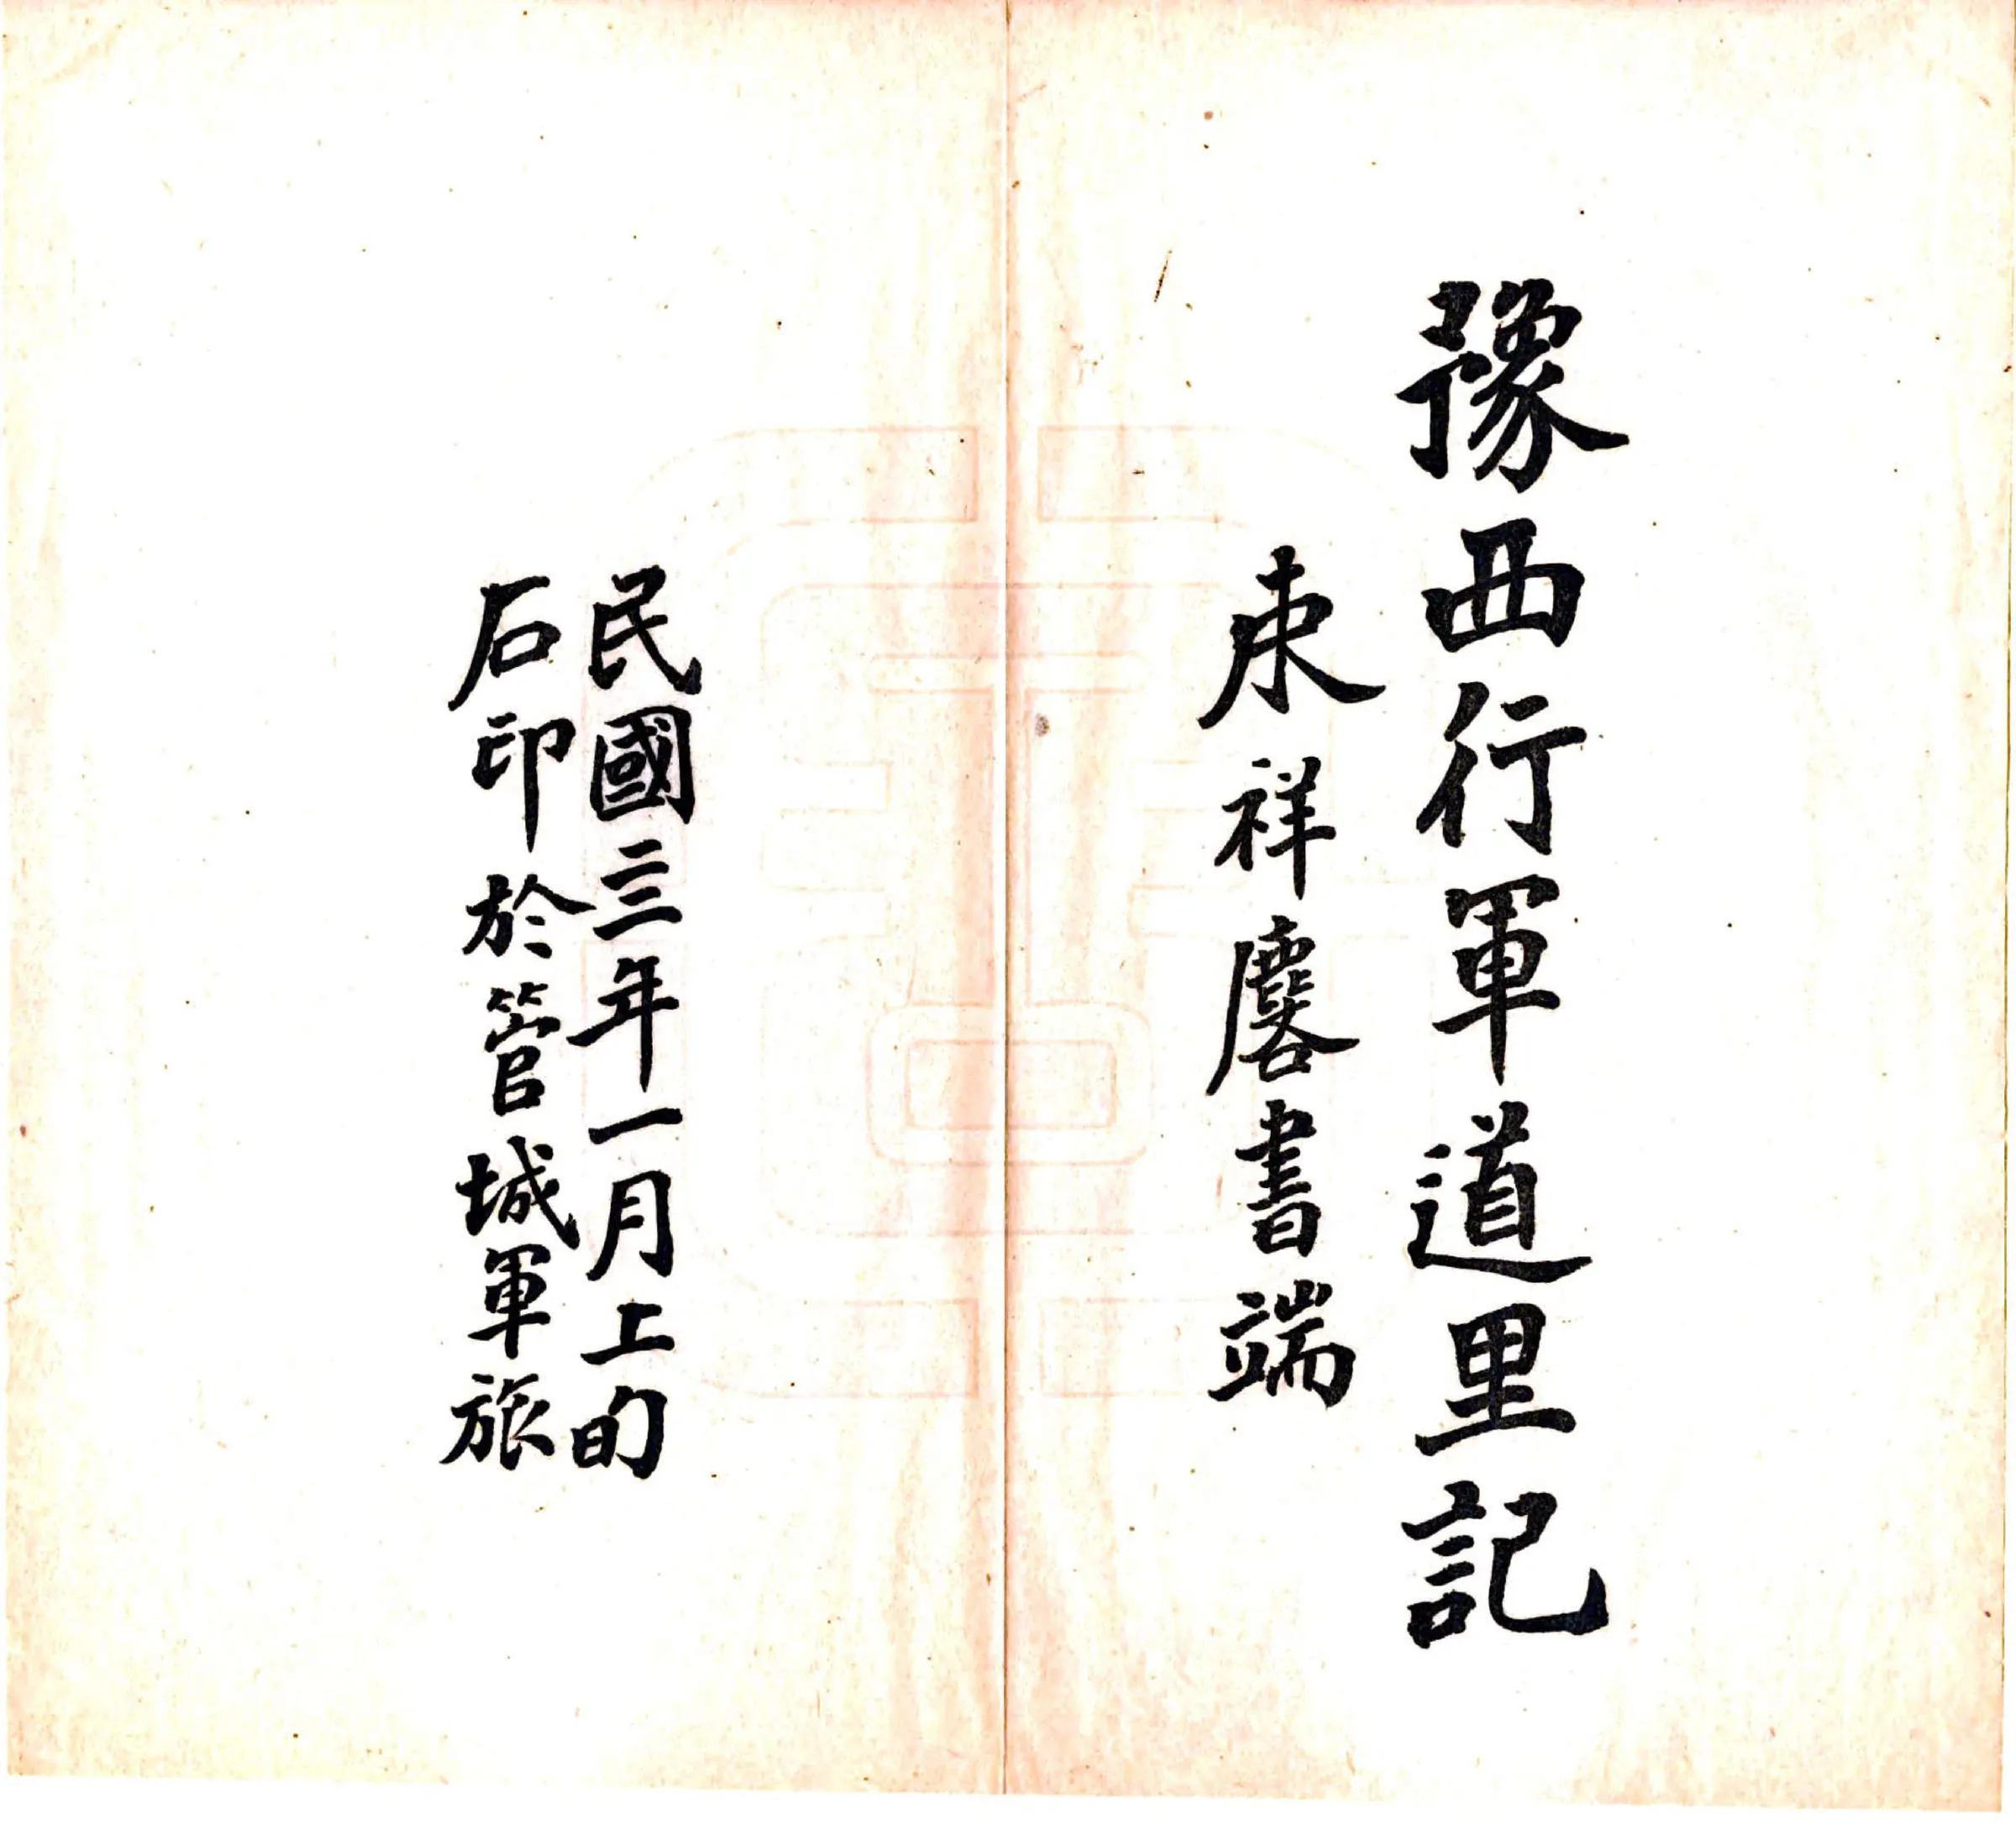 豫西行軍道里記
束祥麐書端
民國三年一月上旬
石印於管城軍旅